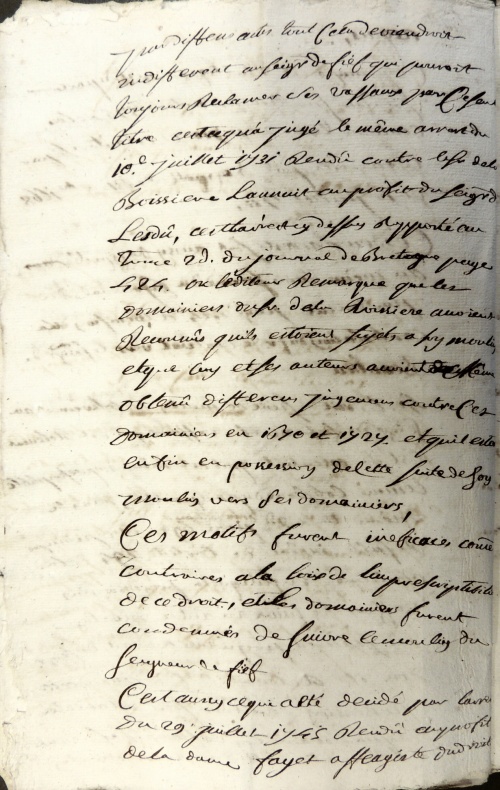 indifferent au seigr de fief qui pouvoit
toujours Reclamer ses vassaux par
titre cest ce qua jugé le même arrest du
10e juillet 1731 Rendu contre le sr de la
Boissiere Launuit au profit du seigr d
Lesdû, cest larrest cy dessus Rapporté au
tome 2d. du journal de Bretagne page
424 ou lediteur Remarque que les
domainiers du sr de la Boissiere avoient
Reconnus quils estoient sujets a son moulin
et que luy et ses auteurs avoient
obtenû differens jugemens contre ces
domainiers en 1670 et 1727 et quil est
enfin en possession de cette suite de son
moulin vers ses domainiers,
Ces motifs furent inefficaces comē
contraires a la loix de limprescriptibilité
de ce droit, et les domainiers furent
condemnés de suivre le moulin du
seigneur de fief
Cest aussy ce qui a été decidé par larrest
du 29 juillet 1745 Rendû au profit
de la dame fayet affeagiste du droit